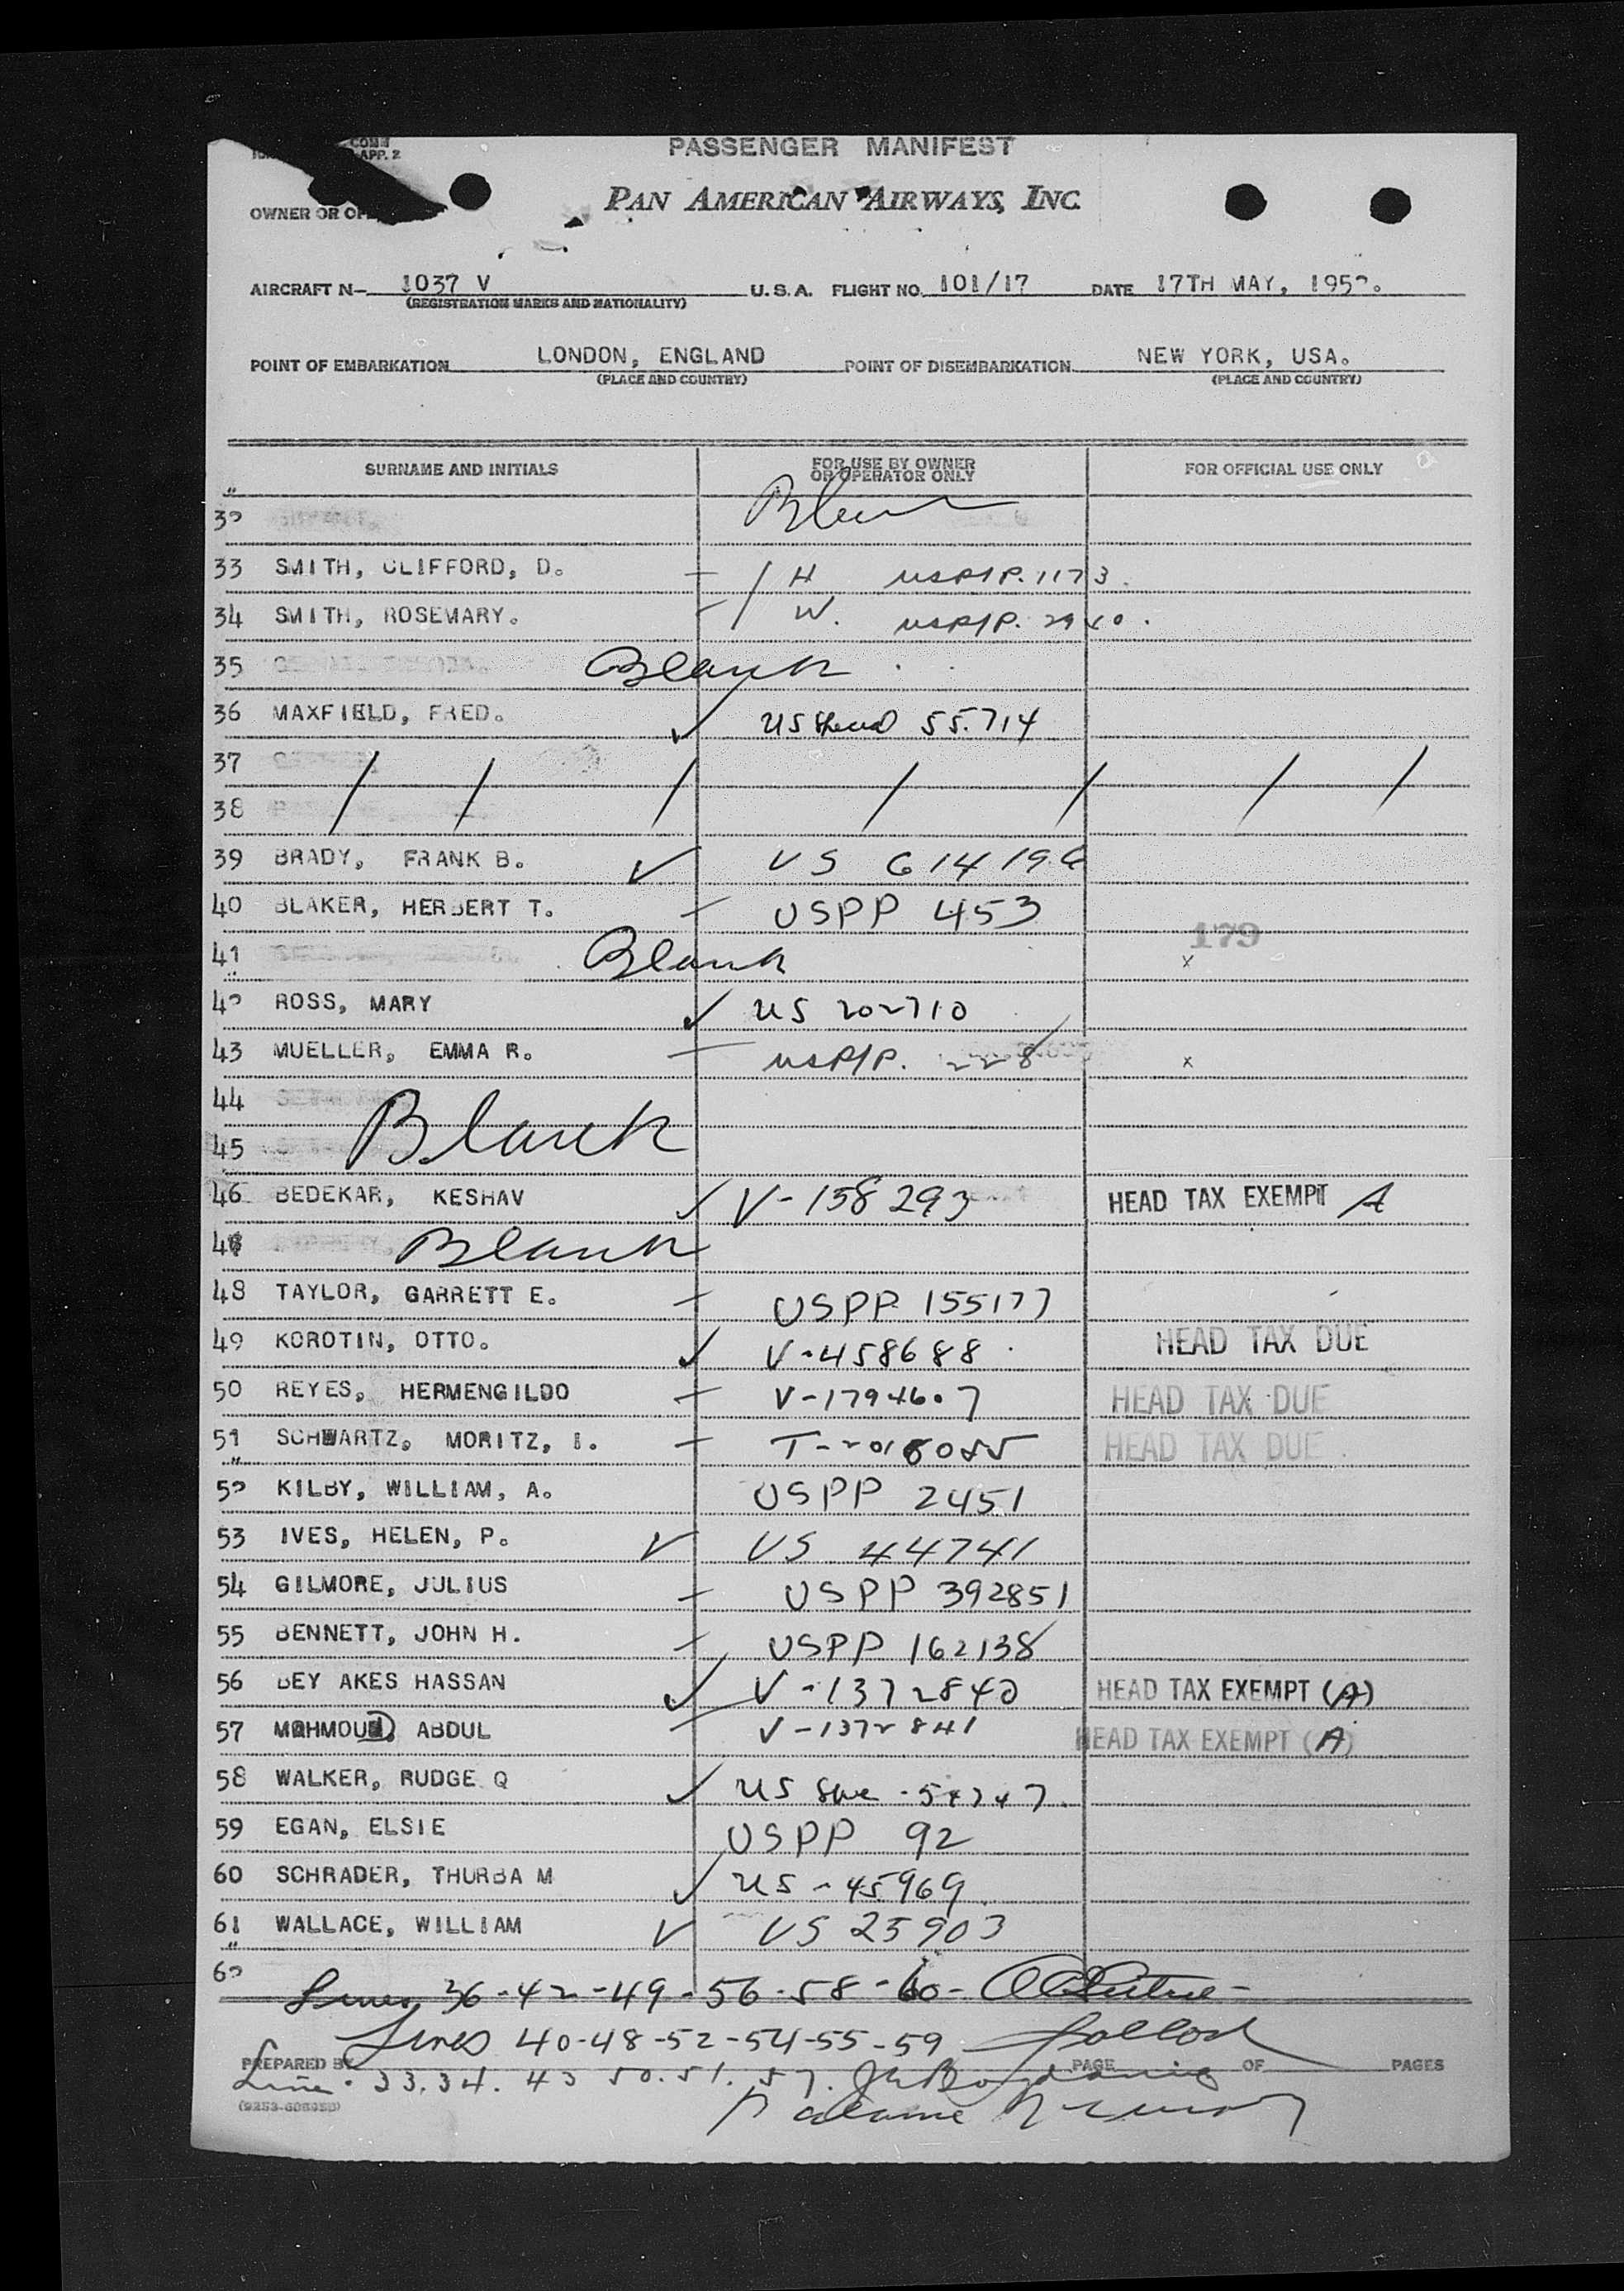 COMM
APP. 2
PASSENGER MANIFEST
OWNER OR OP
PAN AMERICAN AIRWAYS, INC.
AIRCRAFT N- 1037 V U.S.A. FLIGHT NO. 101/17 DATE 17TH MAY, 195
(REGISTRATION MARKS AND NATIONALITY)
POINT OF EMBARKATION LONDON, ENGLAND POINT OF DISEMBARKATION NEW YORK, USA.
(PLACE AND COUNTRY) (PLACE AND COUNTRY)
SURNAME AND INITIALS FOR USE BY OWNER OR OPERATOR ONLY FOR OFFICIAL USE ONLY
33 SMITH, CLIFFORD, D. H USP/P. 1173.
34 SMITH, ROSEMARY. W. USP/P. 2940.
35 Blank
36 MAXFIELD, FRED. ✓ 55.714
37
38
39 BRADY, FRANK B. ✓ US 614196
40 BLAKER, HERBERT T. - USPP 453
179
41 Blank x
ROSS, MARY ✓ US 202710
43 MUELLER, EMMA R. - USP/P. 228 x
44
Blank
45
46 BEDEKAR, KESHAV ✓ V-158293 HEAD TAX EXEMPT A
Blank
48 TAYLOR, GARRETT E. - USPP 155177
49 KOROTIN, OTTO. ✓ V-458688 HEAD TAX DUE
50 REYES, HERMENGILDO - V-1794607 HEAD TAX DUE
51 SCHWARTZ, MORITZ, I. - HEAD TAX DUE
KILBY, WILLIAM, A. USPP 2451
53 IVES, HELEN, P. ✓ US 44741
54 GILMORE, JULIUS - USPP 392851
55 BENNETT, JOHN H. - USPP 162138
56 BEY AKES HASSAN ✓ V-1372840 HEAD TAX EXEMPT (A)
57 MAHMOUD, ABDUL - V-1372841 HEAD TAX EXEMPT (A)
58 WALKER, RUDGE Q ✓ US
59 EGAN, ELSIE USPP 92
60 SCHRADER, THURBA M ✓ US-45969
61 WALLACE, WILLIAM ✓ US 25903
Lines 36-42-49-56-58-60-
Lines 40-48-52-54-55-59
PREPARED BY PAGE OF PAGES
Line. 33.34. 43 50.51. 57.